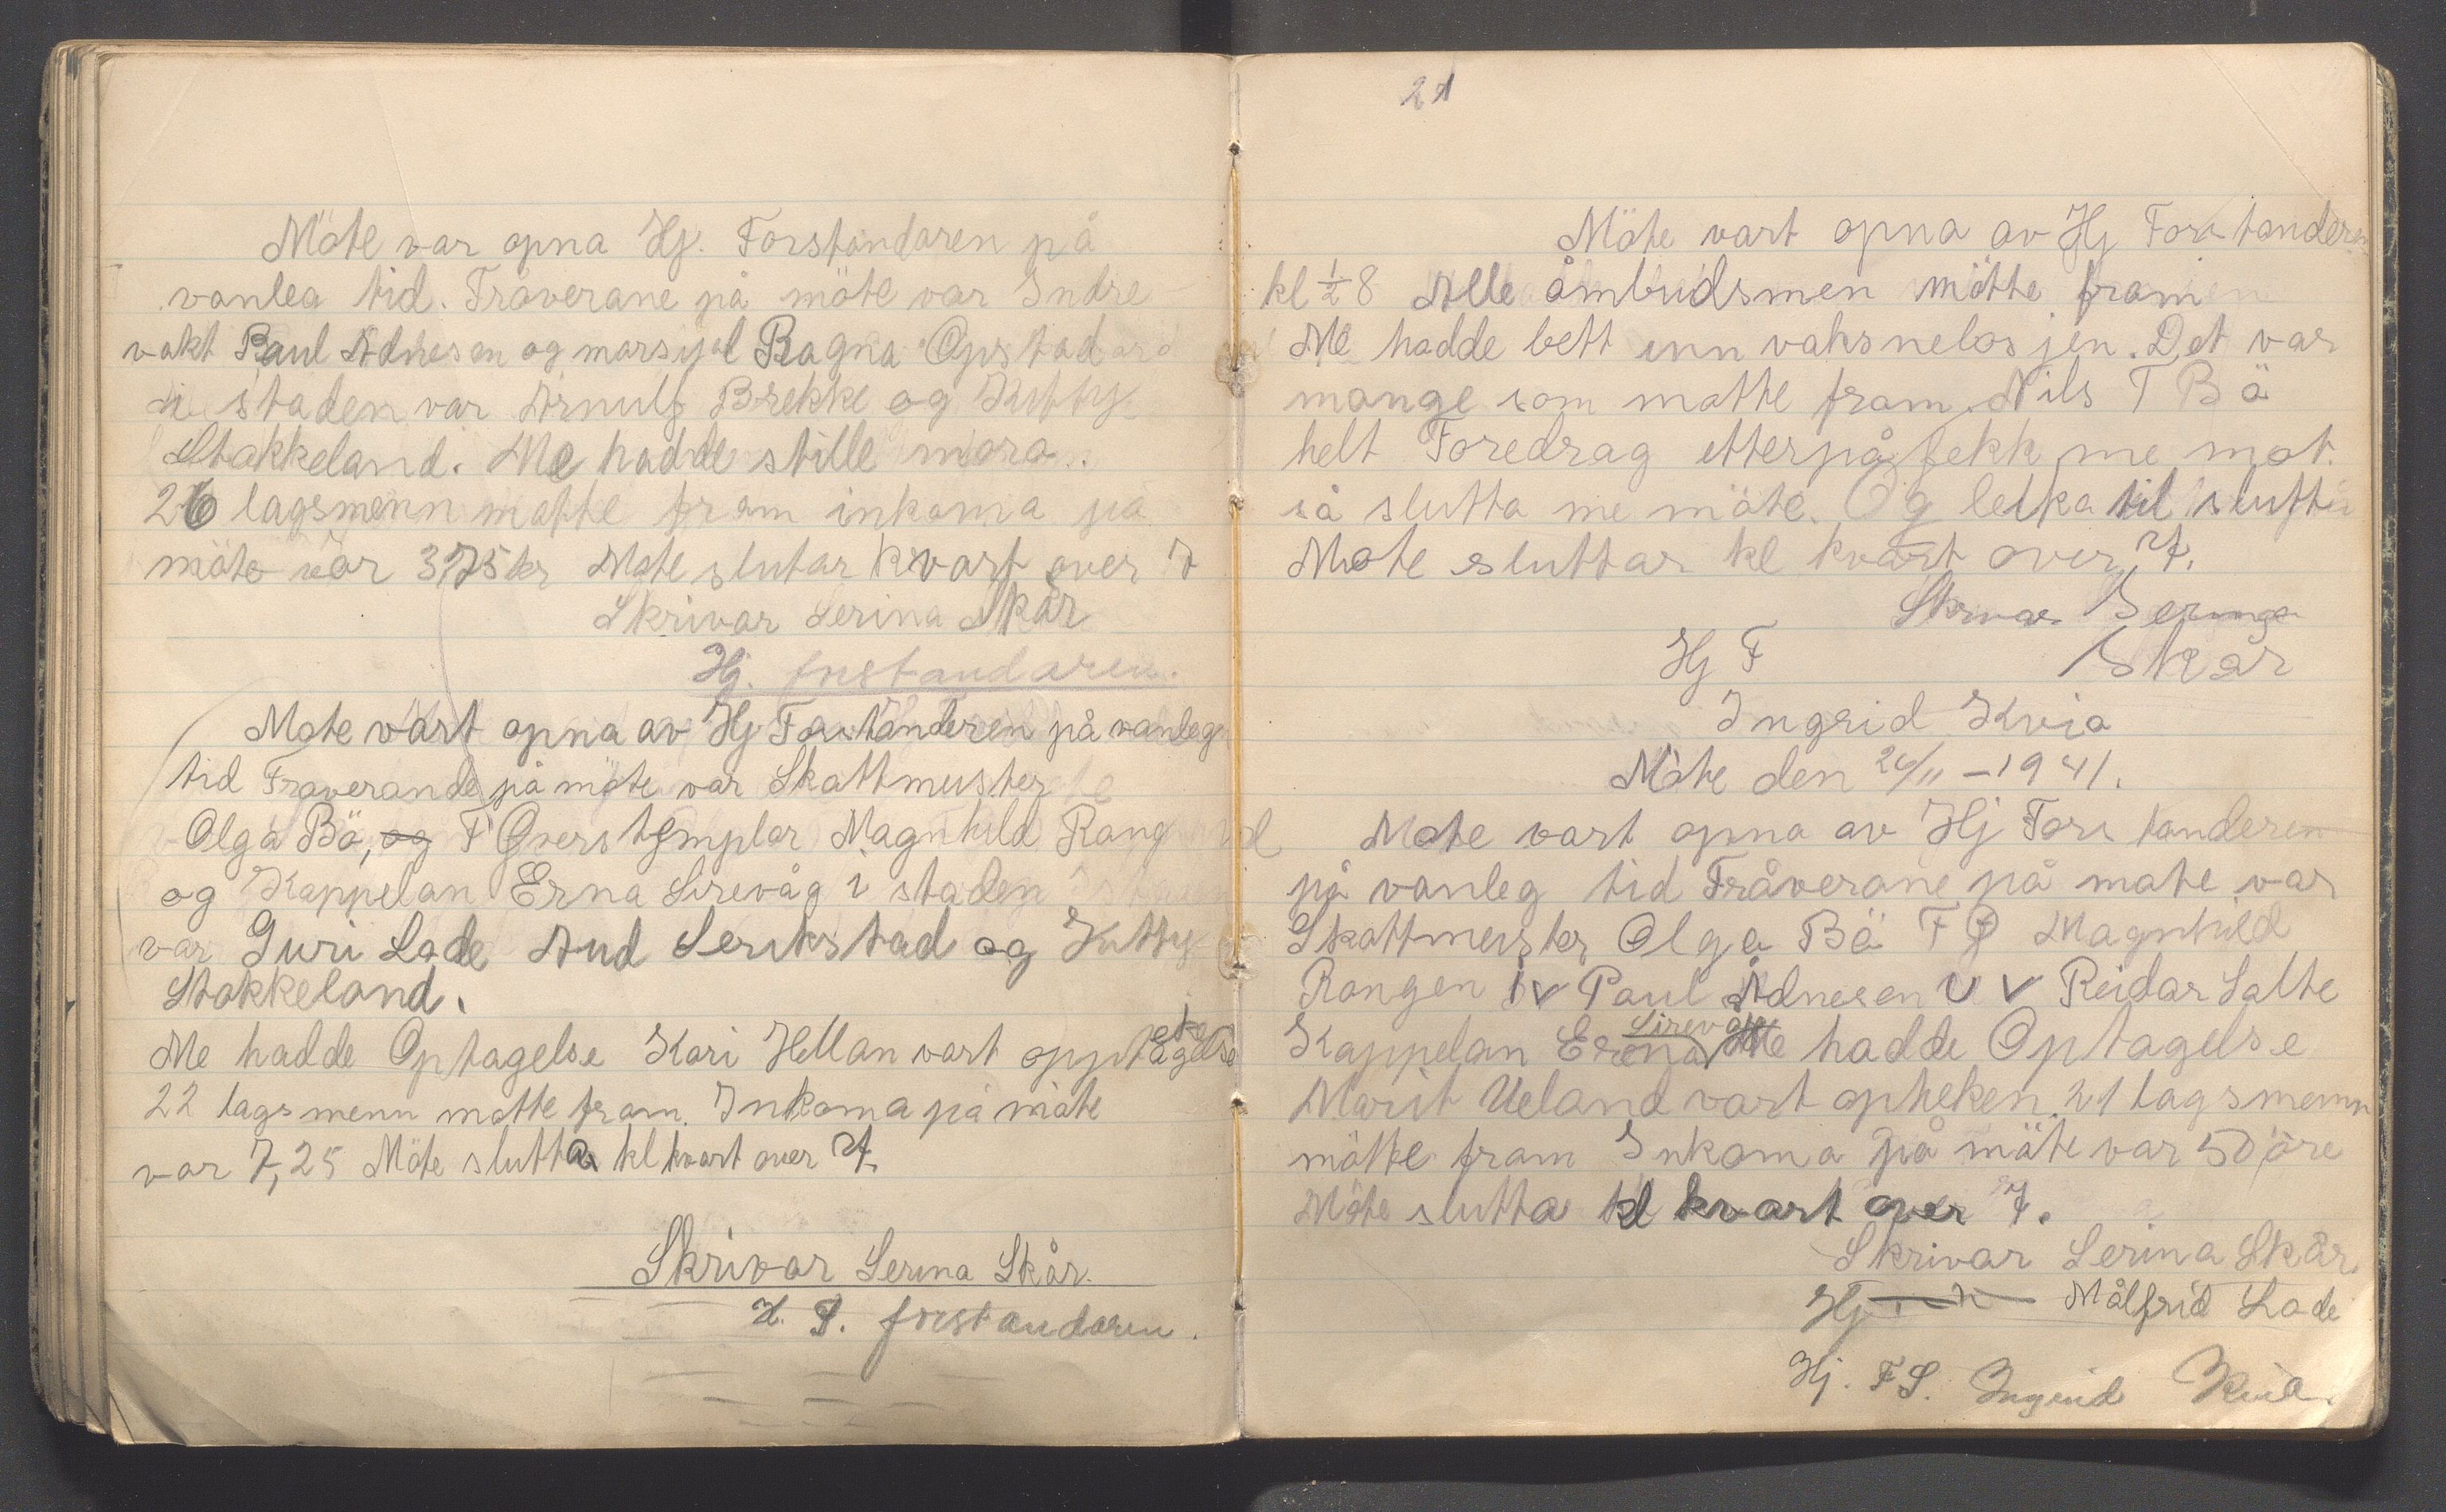 Möte var opna Hj. Forstandaren på
vanlea tid. Fråverane på möte var Indre
vakt Paul Adnesen og marsjal Ragna Opstad
i staden var Arnulf Brekke og Kitty
Stokkeland. Me hadde stille moro..
26 lagsmenn motte fram inkoma på
möte var 3,75 kr Mote slutar kvart over 7
Skrivar Serina Skår
Hj. forstandaren.
Mote vart opna av Hj Forstanderen på vanleg
tid Fraverande på möte var Skattmuster
Olga Bö, og F Øverstemplar Magnhild Rang
og Kappelan Erna Sirevåg i staden
var Guri Lade Aud Serikstad og Kitty
Stokkeland.
Me hadde Optagelse Kari Hellan vart opptake
22 lagsmenn motte fram. Inkoma på möte
var 7,25 Möte slutta kl kvart over 7.
Skrivar Serina Skår.
H. J. forstandaren.
21
Möte vart opna av Hj Forstanderen
kl ½ 8 Alle åmbudsmen mötte fram
Me hadde bett inn vaksnelosjen. Det var
mange som motte fram. Nils T Bö
helt Foredrag etterpå fekk me mat.
så slutta me möte. Og leika til slutt
Mote sluttar kl kvart over 7.
Skrivar Serina
Hj F Skår
Ingrid Kvia
Möte den 26/11 - 1941.
Mote vart opna av Hj Forstanderen
på vanleg tid Fråverane på mate var
Skattmeister Olga Bö F Ø Magnhild
Rangen i v Paul Adnesen u v Reidar Salte
Sirevåg
Kappelan Erna Me hadde Optagelse
Marit Ueland vart opteken. 21 lagsmenn
mötte fram Inkoma på möte var 50 öre
Möte slutta kl kvart over 7.
Skrivar Serina Skår.
Hj Målfrid Lode
Hj. F S. Ingrid Kvia.